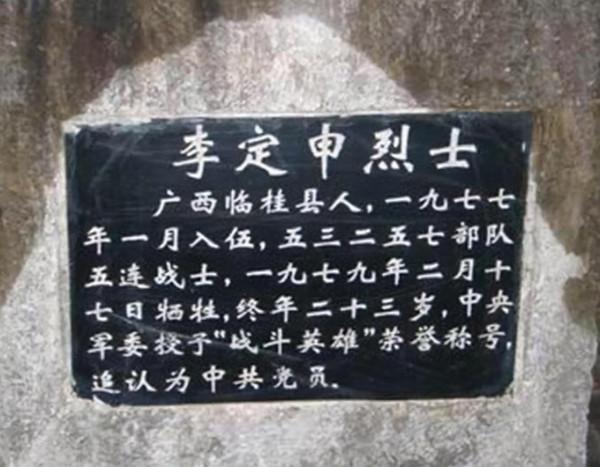 李定申烈士
广西临桂县人,一九七七
年一月入伍,五三二五七部队
五连战士,一九七九年二月十
七日牺牲,终年二十三岁,中央
军委授予“战斗英雄”荣誉称号,
追认为中共党员.